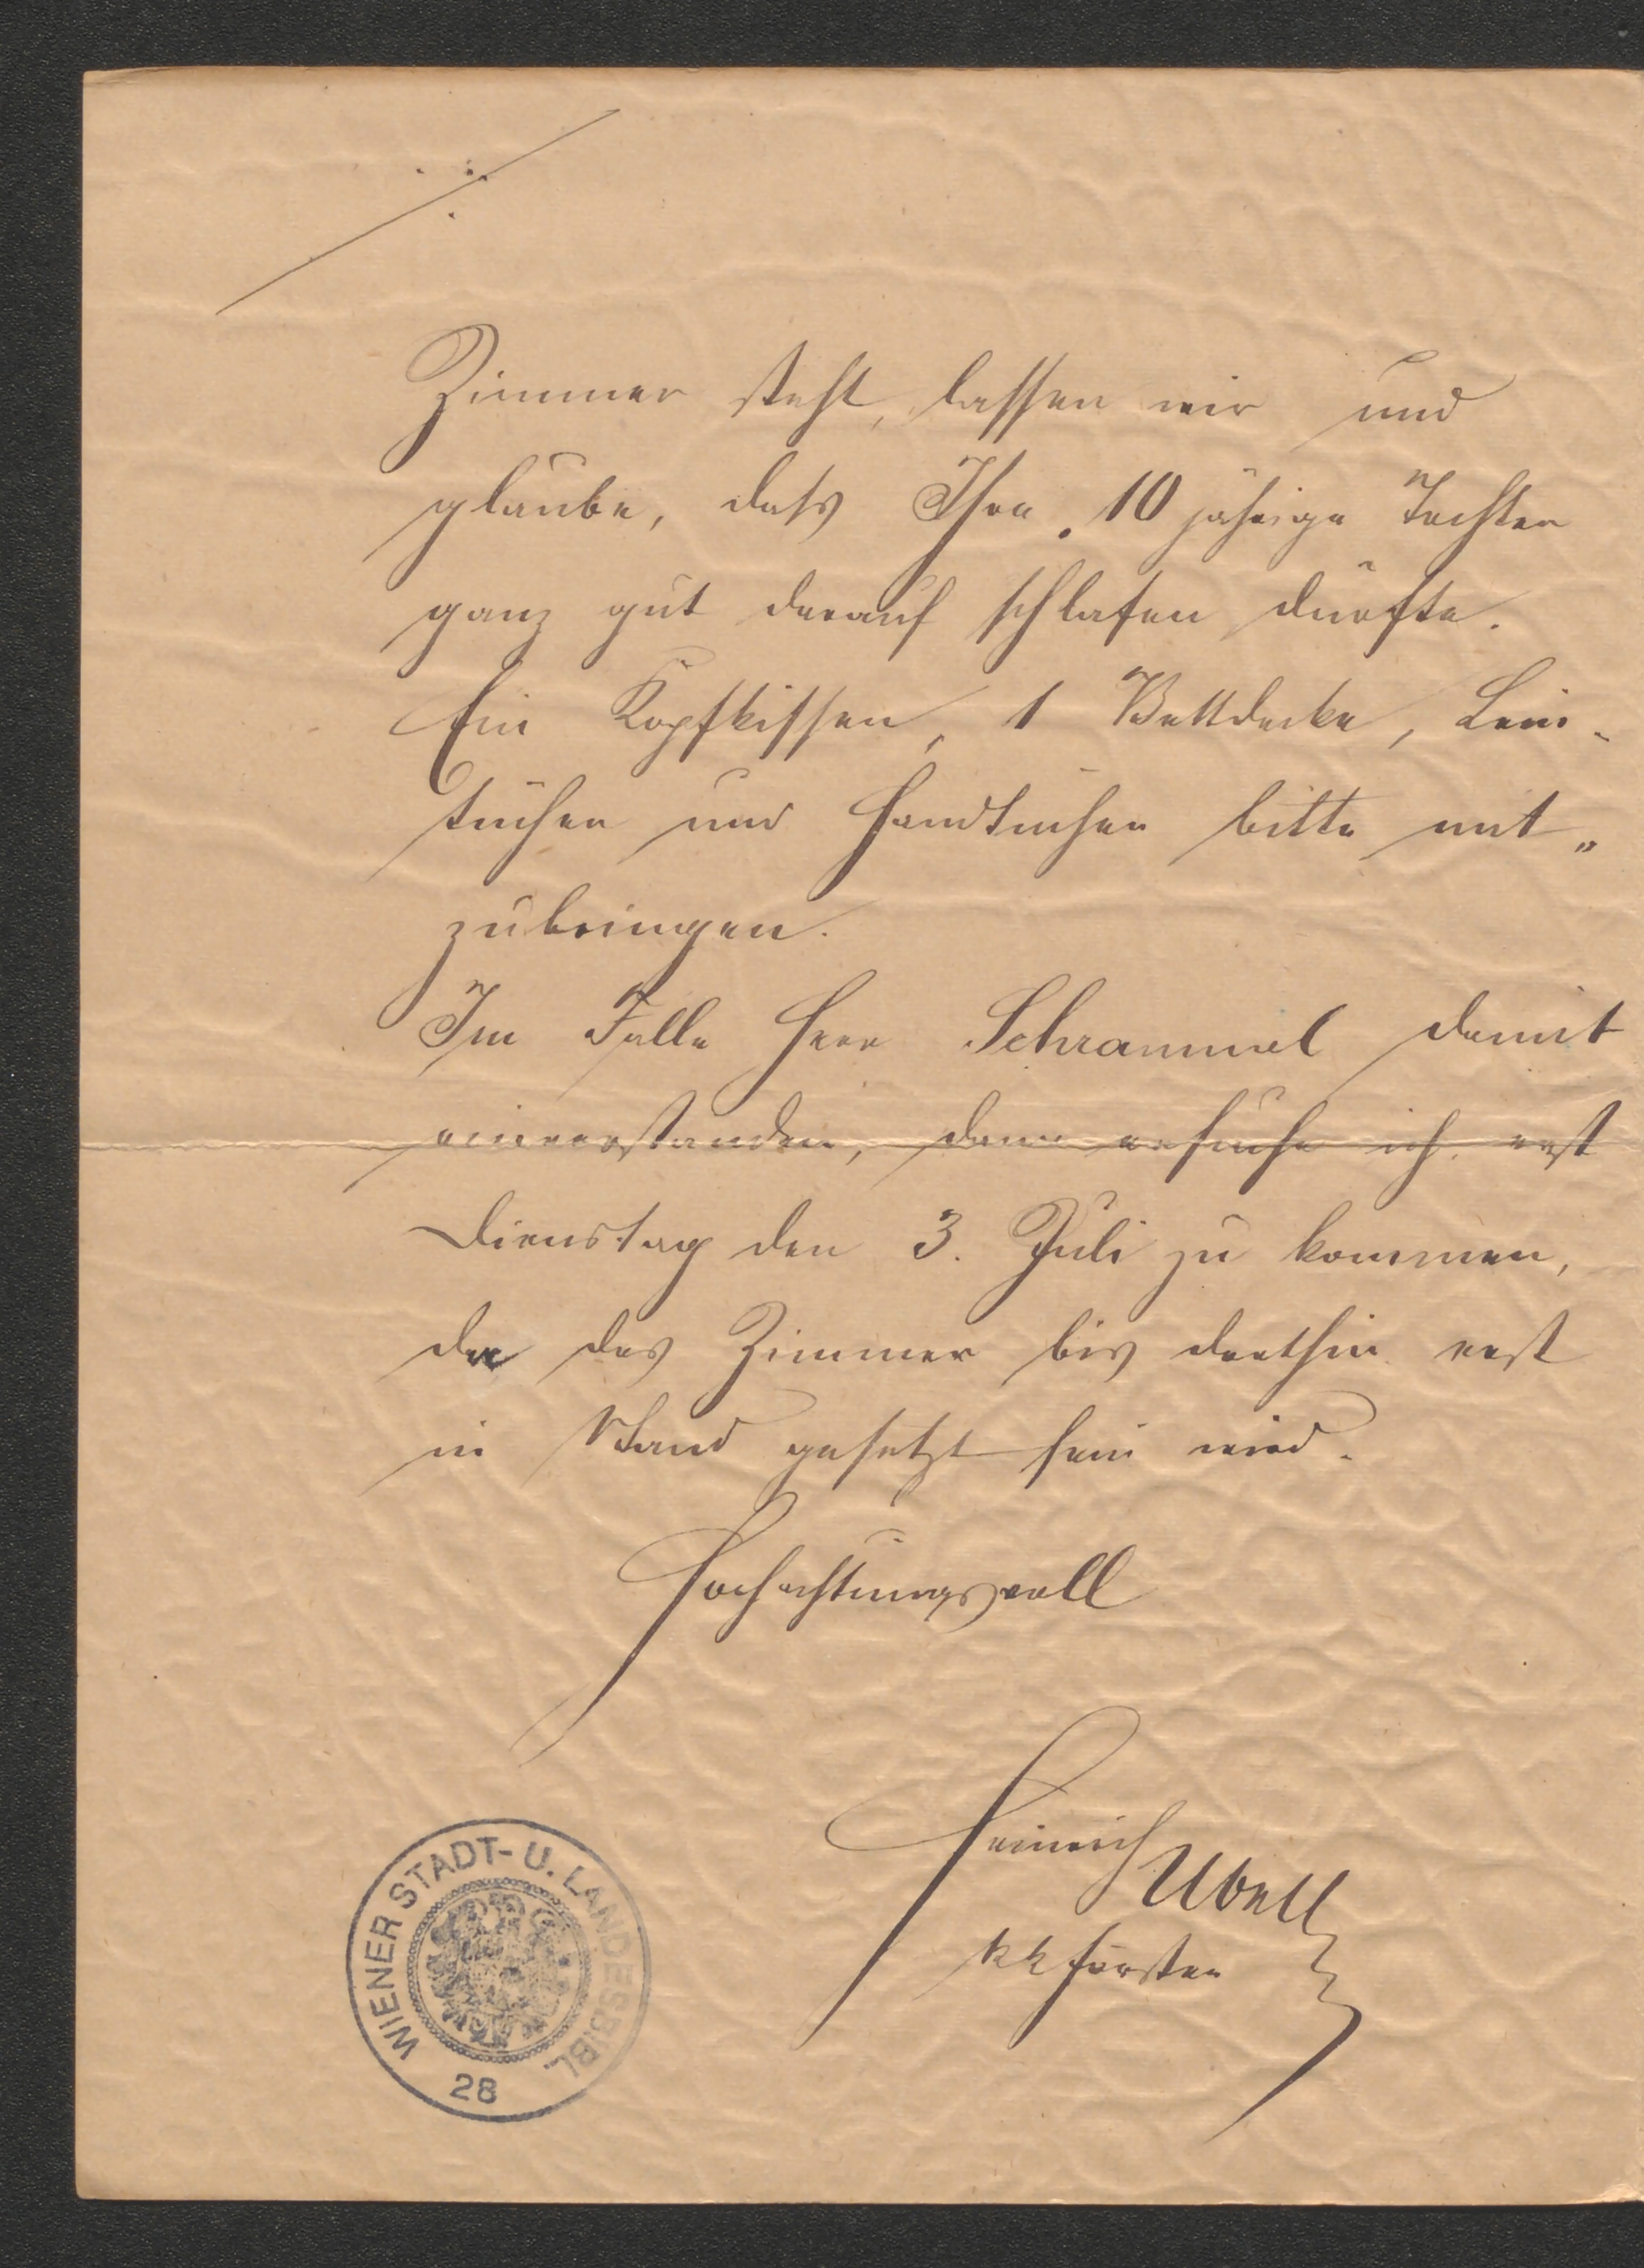 Zimmer steht, lassen wir und
glaube, daß Ihre 10 jährige Tochter
ganz gut darauf schlafen dürfte.
Ein Kopfkissen, 1 Bettdecke, Lein-
tücher und Handtücher bitte mit„
zubringen.
Im Falle Herr Schrammel damit
einverstanden, dann ersuche ich erst
Dienstag den 3. Juli zu kommen,
da das Zimmer bis dorthin erst
in Stand gesetzt sein wird.
Hochachtungsvoll
Heinrich
Ubell
kk Förster
WIENER STADT- U. LANDESBIBL.
28